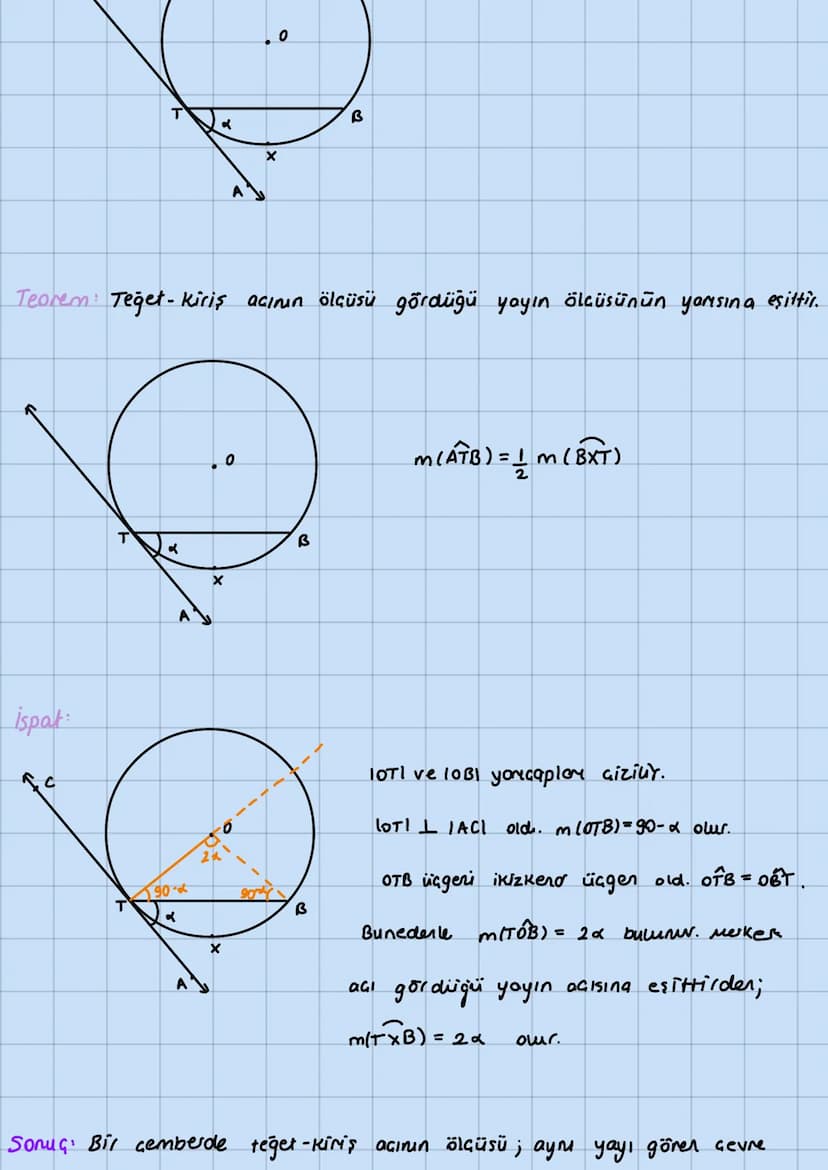 O
T
α
B
X
A
Teorem: Teğet-Kiriş açının ölçüsü gördüğü yayın ölçüsünün yarısına eşittir.
O
m(AT̂B) = 1/2 m(BXT)
T
α
B
X
A
İspat:
C
|OT| ve |OB| yarıçapları çizilir.
O
|OT| ⊥ |AC| old. m(OTB)=90-α olur.
2α
90-α
90-α
OTB üçgeni ikizkenar üçgen old. OT̂B = OB̂T.
T
α
B
Bunedenle m(TÔB) = 2α bulunur. Merkez
X
A
açı gördüğü yayın açısına eşittirden;
m(TXB) = 2α olur.
Sonuç: Bir çemberde teğet-kiriş açının ölçüsü; aynı yayı gören çevre